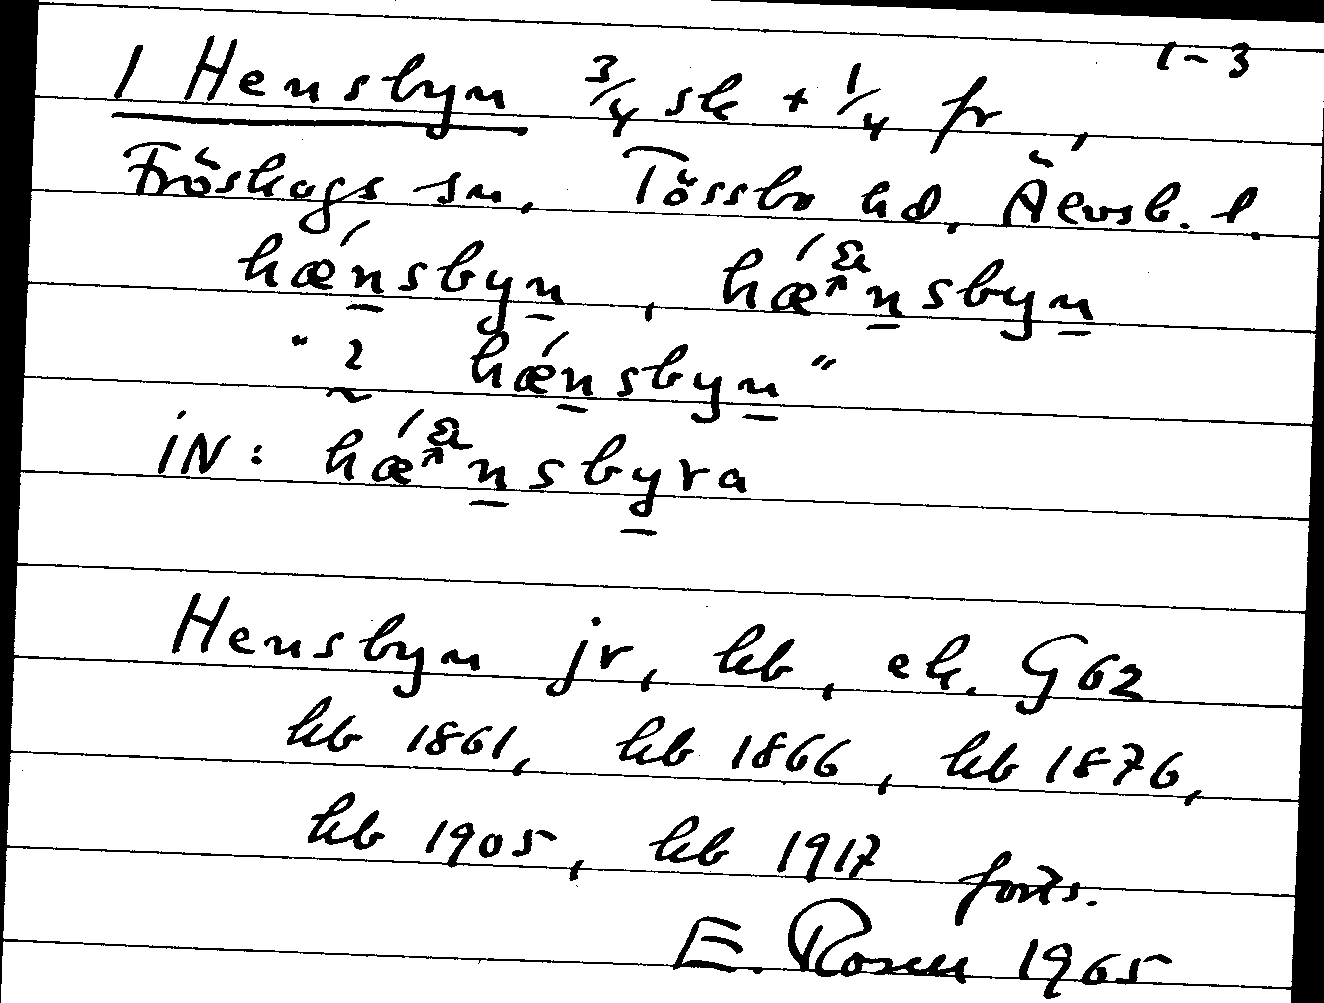 1-3
1 Hensbyn 3/4 sk + 1/4 fr,
Fröskogs sn. Tössbo hd, Älvsb. l.
hǽnsbyn, hǽnsbyn
" 2 hǽnsbyn "
iN: hǽnsbyra
Hensbyn jr, kb, ek. G62
kb 1861, kb 1866, kb 1876,
kb 1905, kb 1917 forts.
E. Rosell 1965